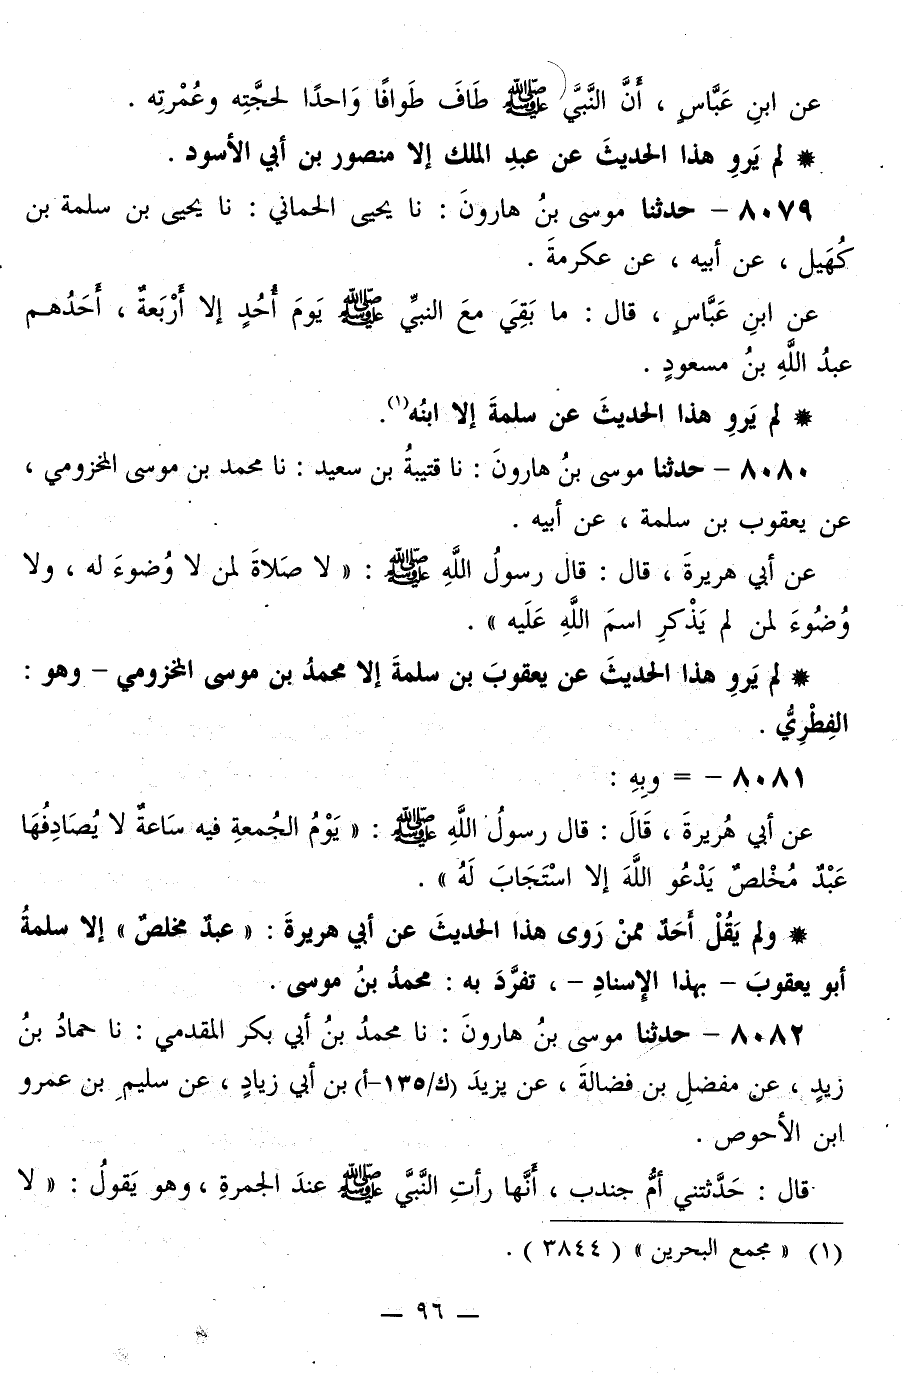 عن ابنِ عَبَّاسٍ ، أَنَّ النَّبيَّ ﷺ طَافَ طَوافًا وَاحدًا لحجَّتِه وعُمْرتِه .
* لم يَروِ هذا الحديثَ عن عبدِ الملك إلا منصور بن أبي الأسود .
٨٠٧٩ – حدثنا موسى بنُ هارونَ : نا يحيى الحماني : نا يحيى بن سلمة بن
كُهَيل ، عن أبيه ، عن عكرمةَ .
عن ابنِ عَبَّاسٍ ، قال : ما بَقِيَ معَ النبيِّ ﷺ يَومَ أُحُدٍ إلا أَرْبَعةٌ ، أَحَدُهـم
عبدُ اللَّهِ بنُ مسعودٍ .
* لم يَروِ هذا الحديثَ عن سلمةَ إلا ابنُه(١).
٨٠٨٠ – حدثنا موسى بنُ هارونَ : نا قتيبةُ بن سعيد : نا محمد بن موسى المخزومي ،
عن يعقوب بن سلمة ، عن أبيه .
عن أبي هريرةَ ، قال : قال رسولُ اللَّهِ ﷺ : « لا صَلاةَ لمن لا وُضوءَ له ، ولا
وُضُوءَ لمن لم يَذْكرِ اسمَ اللَّهِ عَلَيه » .
* لم يَروِ هذا الحديثَ عن يعقوبَ بن سلمةَ إلا محمدُ بن موسى المخزومي – وهو :
الفِطْرِيُّ .
٨٠٨١ – = وبِهِ :
عن أبي هُريرةَ ، قَالَ : قال رسولُ اللَّهِ ﷺ : « يَوْمُ الجُمعةِ فيه سَاعةٌ لا يُصَادِفُهَا
عَبْدٌ مُخْلصٌ يَدْعُو اللَّهَ إلا اسْتَجَابَ لَهُ » .
* ولم يَقُلْ أَحَدٌ ممنْ رَوى هذا الحديثَ عن أبي هريرةَ : « عبدٌ مخلصٌ » إلا سلمةُ
أبو يعقوبَ – بهذا الإسنادِ – ، تفرَّدَ به : محمدُ بنُ موسى .
٨٠٨٢ – حدثنا موسى بنُ هارونَ : نا محمدُ بنُ أبي بكر المقدمي : نا حمادُ بنُ
زيدٍ ، عن مفضلِ بن فضالةَ ، عن يزيدَ (ك/١٣٥-أ) بن أبي زيادٍ ، عن سليم بن عمرو
ابن الأحوص .
قال : حَدَّثتني أمُّ جندب ، أَنَّها رأتِ النَّبيَّ ﷺ عندَ الجمرةِ ، وهو يَقولُ : « لا
(١) « مجمع البحرين » ( ٣٨٤٤ ) .
– ٩٦ –